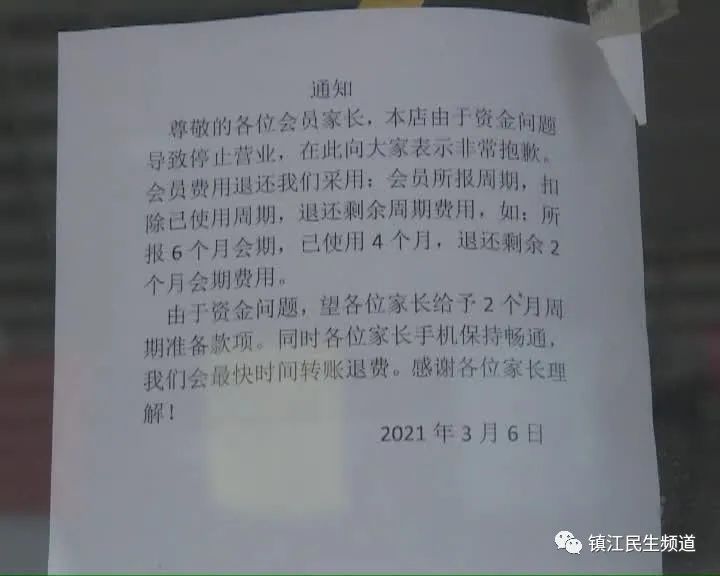 通知
尊敬的各位会员家长，本店由于资金问题
导致停止营业，在此向大家表示非常抱歉。
会员费用退还我们采用：会员所报周期，扣
除已使用周期，退还剩余周期费用，如：所
报6个月会期，已使用4个月，退还剩余2
个月会期费用。
由于资金问题，望各位家长给予2个月周
期准备款项。同时各位家长手机保持畅通，
我们会最快时间转账退费。感谢各位家长理
解！
2021年3月6日
镇江民生频道